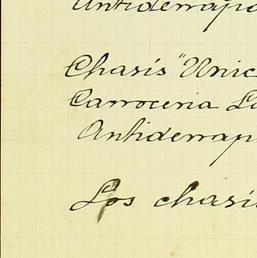 Antiderrapa
Chasis "Unic
Carroceria La
Antiderrap
Los chasi